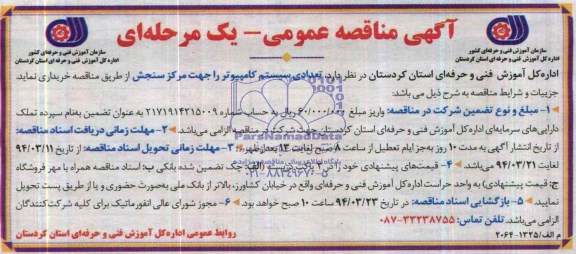 آگهی مناقصه عمومی - یک مرحله‌ای
سازمان آموزش فنی و حرفه‌ای کشور
اداره کل آموزش فنی و حرفه‌ای استان کردستان
سازمان آموزش فنی و حرفه‌ای کشور
اداره کل آموزش فنی و حرفه‌ای استان کردستان
اداره‌کل آموزش فنی و حرفه‌ای استان کردستان در نظر دارد، تعدادی سیستم کامپیوتر را جهت مرکز سنجش از طریق مناقصه خریداری نماید.
جزییات و شرایط مناقصه به شرح ذیل می‌باشد:
۱- مبلغ و نوع تضمین شرکت در مناقصه: واریز مبلغ ۶۰/۰۰۰/۰۰۰ ریال به حساب شماره ۲۱۷۱۹۱۴۲۱۵۰۰۹ به عنوان تضمین به‌نام سپرده تملک
دارایی‌های سرمایه‌ای اداره‌کل آموزش فنی و حرفه‌ای استان کردستان جهت شرکت در مناقصه الزامی می‌باشد. ۲- مهلت زمانی دریافت اسناد مناقصه:
از تاریخ انتشار آگهی به مدت ۱۰ روز به‌جز ایام تعطیل از ساعت ۸ صبح لغایت ۱۳ بعدازظهر. ۳- مهلت زمانی تحویل اسناد مناقصه: از تاریخ ۹۴/۰۳/۱۱
لغایت ۹۴/۰۳/۲۱ می‌باشد. ۴- قیمت‌های پیشنهادی خود را در ۳ پاکت دربسته (الف: چک تضمین شده بانکی ب: اسناد مناقصه همراه با مهر فروشگاه
ج: قیمت پیشنهادی) به واحد حراست اداره‌کل آموزش فنی و حرفه‌ای واقع در خیابان کشاورز، بالاتر از بانک ملی به‌صورت حضوری و یا از طریق پست تحویل
نمایید. ۵- بازگشایی اسناد مناقصه: در تاریخ ۹۴/۰۳/۲۳ ساعت ۱۰ صبح خواهد بود. ۶- مجوز شورای عالی انفورماتیک برای کلیه شرکت‌کنندگان
الزامی می‌باشد. تلفن تماس: ۳۳۲۳۸۷۵۵-۰۸۷
روابط عمومی اداره‌کل آموزش فنی و حرفه‌ای استان کردستان
م الف/۱۳۲۵-۲۰۶۴
ParsNamadData
پایگاه اطلاع رسانی مناقصه مزایده
۰۲۱-۸۸۳۴۹۶۷۰-۵